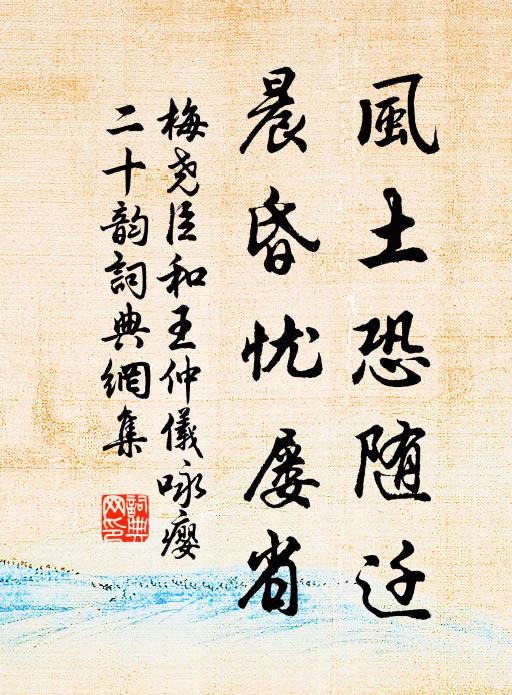 風土恐随迁
晨昏忧屡省
梅尧臣和王仲儀咏瘿
二十韵詞典網集
詞典网印